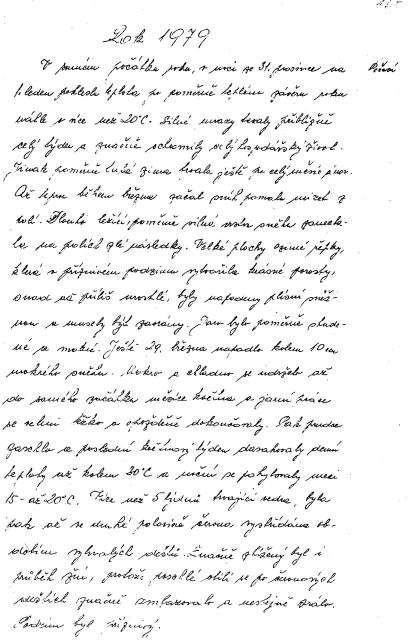 Rok 1979
V samém počátku roku, v noci ze 31. prosince na
1. leden poklesla teplota, po poměrně teplém závěru roku
náhle o více než 20°C. Silné mrazy trvaly přibližně
celý týden a značně ochromily celý hospodářský život.
Jinak poměrně tuhá zima trvala ještě po celý měsíc únor.
Až teprve během března začal sníh pomalu mizet z
polí. Dlouho ležící, poměrně silná vrstva sněhu zanecha-
la na polích zlé následky. Velké plochy ozimé řepky,
která v příznivém podzimu vytvořila krásné porosty,
snad až příliš vzrostlé, byly napadeny plísní sněž-
nou a musely být zaorány. Jaro bylo poměrně stude-
né a mokré. Ještě 29. března napadlo kolem 10 cm
mokrého sněhu. Mokro a chladno se udrželo až
do samého začátku měsíce května a jarní práce
se velmi těžko a opožděně dokončovaly. Pak prudce
a poslední květnový týden dosahovaly denní
teploty až kolem 30°C a noční se pohybovaly mezi
15 - až 20°C. Více než 5 týdnů trvající vedra, byla
pak až ve druhé polovině června vystřídána ob-
dobím vytrvalých dešťů. Značně ztížený byl i
průběh žní, protože polehlé obilí se po
deštích značně a nestejně zrálo.
Podzim byl příznivý.